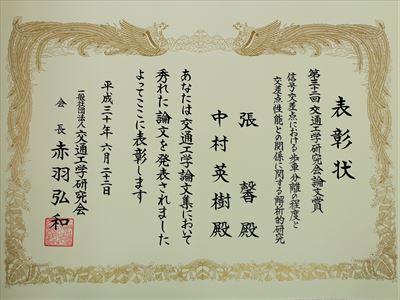 表彰状
第三十二回 交通工学研究会論文賞
信号交差点における歩車分離の程度と
交差点性能との関係に関する解析的研究
張 馨 殿
中村 英樹 殿
あなたは 交通工学論文集において
秀れた論文を発表されました
よってここに表彰します
平成三十年 六月二十二日
一般社団法人 交通工学研究会
会長 赤羽弘和